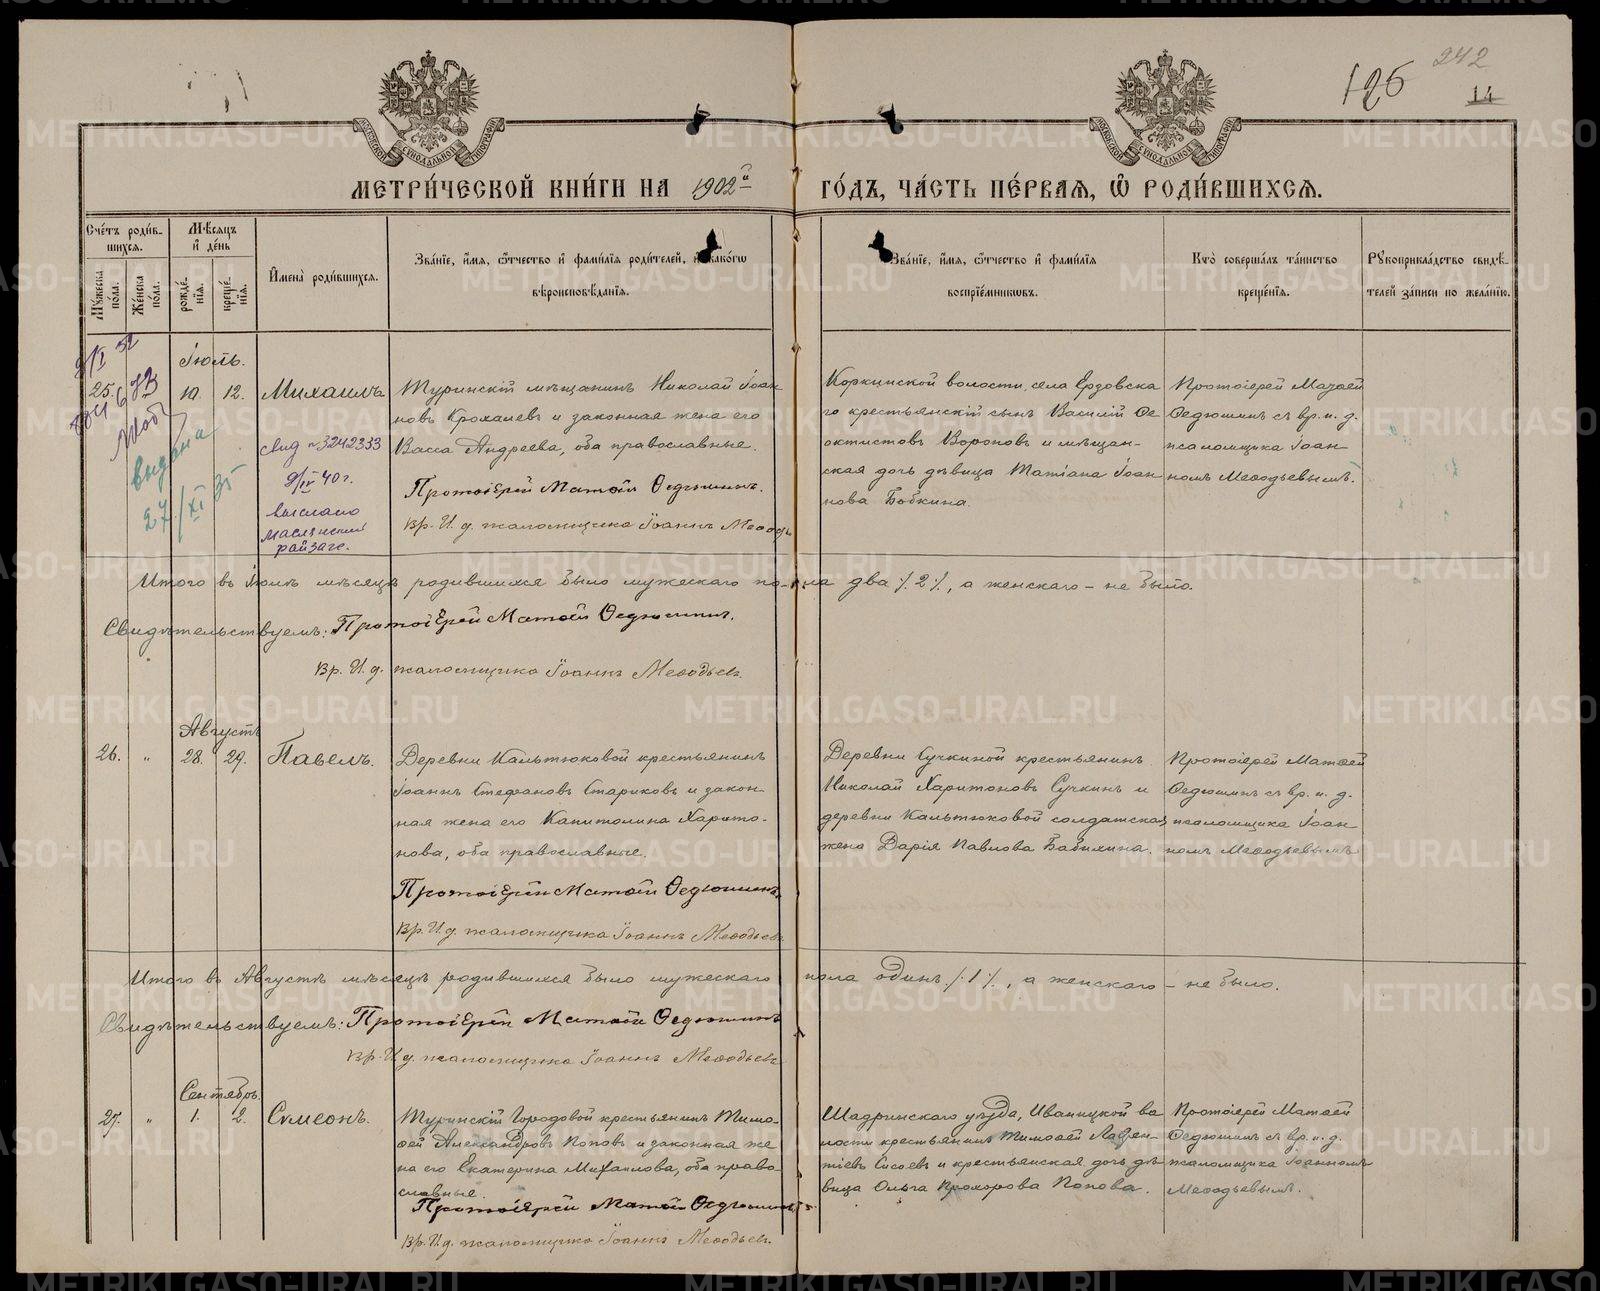 242
126
14
МОСКОВСКОЙ СУНОДАЛЬНОЙ ТИПОГРАФІИ
МОСКОВСКОЙ СУНОДАЛЬНОЙ ТИПОГРАФІИ
МЕТРИ́ЧЕСКОЙ КНИ́ГИ НА 1902й ГО́ДЪ, ЧА́СТЬ ПЕ́РВАѦ, Ѡ҆ РОДИ́ВШИХСѦ.
Сче́тъ роди́в-
шихсѧ.
Мꙋ́жеска по́ла.
Же́нска по́ла.
Мѣ́сѧцъ
и҆ де́нь
рожде́-
нїѧ.
креще́-
нїѧ.
И҆мена̀ роди́вшихсѧ.
Зва́нїе, и҆́мѧ, ѻ҆́тчество и҆ фами́лїѧ роди́телей, и҆ како́гѡ
вѣроисповѣ́данїѧ.
Зва́нїе, и҆́мѧ, ѻ҆́тчество и҆ фами́лїѧ
воспрїе́мникѡвъ.
Кто̀ соверша́лъ та́инство
креще́нїѧ.
Рꙋкоприкла́дство свидѣ́-
телей за́писи по жела́нїю.
Іюль.
25. 10. 12. Михаилъ
Туринскій мѣщанинъ Николай Іоан
новъ Крохалевъ и законная жена его
Васса Андреева, оба православные.
Протоіерей Матѳій Ѳедюшинъ.
Вр. И. д. псаломщика Іоаннъ Меѳодь
свид № 3242333
9/IV 40 г.
выслано
райзагс.
выдана
27/XI 35
Коркинской волости, села Ерзовска
го крестьянскій сынъ Василій Ѳе
октистовъ Вороновъ и мѣщан-
ская дочь дѣвица Татіана Іоан
нова Бобкина.
Протоіерей Матѳей
Ѳедюшинъ съ вр. и. д.
псаломщика Іоан
номъ Меѳодьевымъ.
Итого въ Іюлѣ мѣсяцѣ родившихся было мужескаго по-ла два /. 2 /., а женскаго – не было.
Свидѣтельствуемъ: Протоіерей Матѳій Ѳедюшинъ.
Вр. И. д. псаломщика Іоаннъ Меѳодьевъ.
Августъ
26. " 28. 29. Павелъ.
Деревни Кальтюковой крестьянинъ
Іоаннъ Стефановъ Стариковъ и закон-
ная жена его Капитолина Харито-
нова, оба православные.
Протоіерей Матѳій Ѳедюшинъ.
Вр. И. д. псаломщика Іоаннъ Меѳодьевъ
Деревни Сучкиной крестьянинъ
Николай Харитоновъ Сучкинъ и
деревни Кальтюковой солдатская
жена Дарія Павлова Бабихина.
Протоіерей Матѳей
Ѳедюшинъ съ вр. и. д.
псаломщика Іоан
номъ Меѳодьевымъ
Итого въ Августѣ мѣсяцѣ родившихся было мужескаго пола одинъ /. 1 /., а женскаго – не было.
Свидѣтельствуемъ: Протоіерей Матѳій Ѳедюшинъ
Вр. И. д. псаломщика Іоаннъ Меѳодьевъ
Сентябрь.
27. " 1. 2. Симеонъ.
Туринскій Городовой крестьянинъ Тимо-
ѳей Александровъ Поповъ и законная же
на его Екатерина Михаилова, оба право-
славные.
Протоіерей Матѳій Ѳедюшинъ.
Вр. И. д. псаломщика Іоаннъ Меѳодьевъ.
Шадринскаго уѣзда, Иванищкой во
лости крестьянинъ Тимоѳей Лаврен-
тіевъ Сысоевъ и крестьянская дочь дѣ
вица Ольга Прохорова Попова.
Протоіерей Матѳей
Ѳедюшинъ съ вр. и. д.
псаломщика Іоанномъ
Меѳодьевымъ.
METRIKI.GASO-URAL.RU